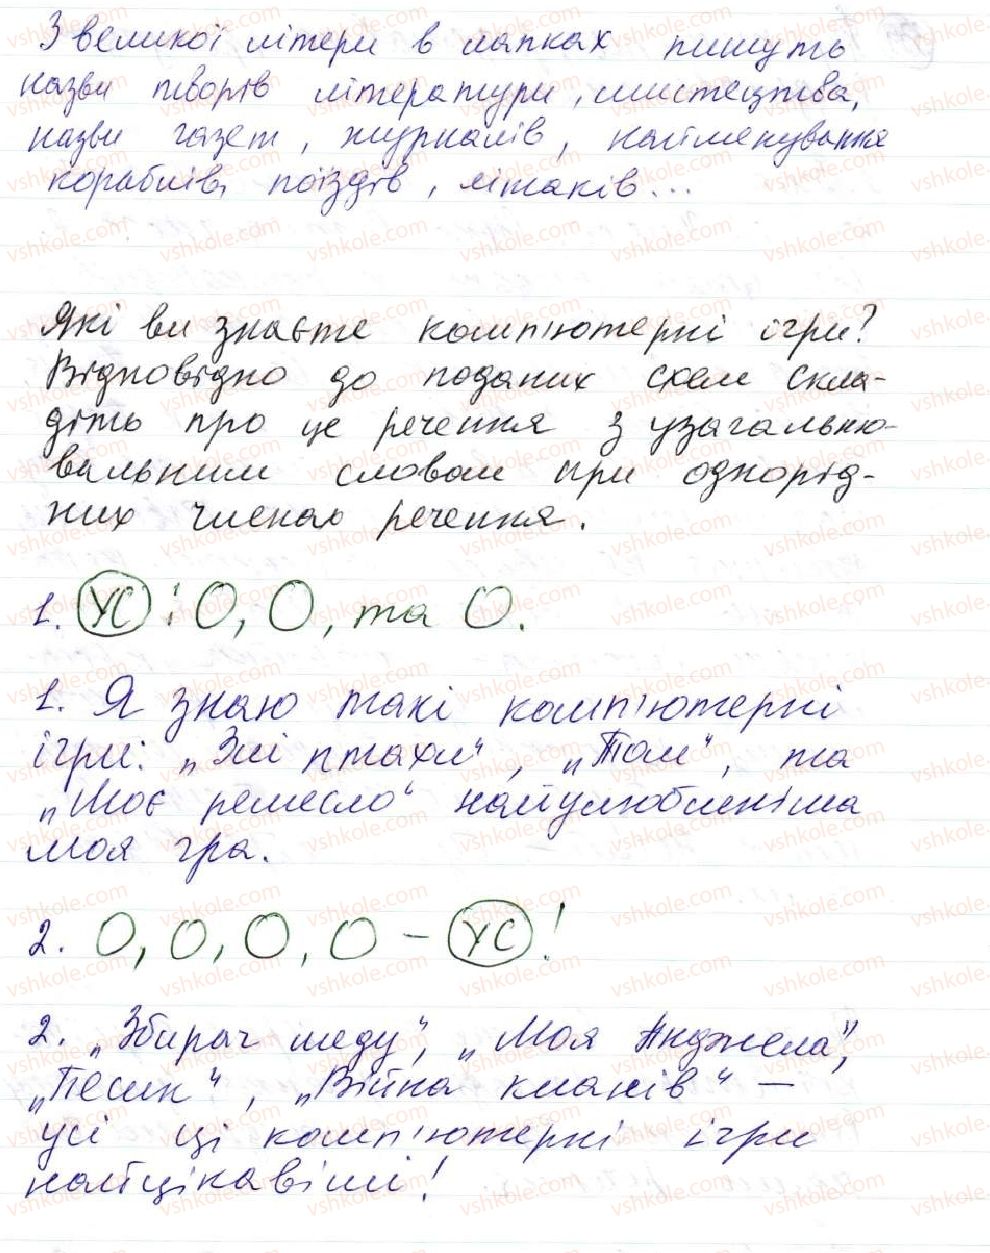 З великої літери в лапках пишуть
назви творів літератури, мистецтва,
назви газет, журналів, найменування
кораблів, поїздів, літаків...
Які ви знаєте комп'ютерні ігри?
Відповідно до поданих схем скла-
діть про це речення з узагальню-
вальним словом при однорід-
них членах речення.
1. УС : О, О, та О.
1. Я знаю такі комп'ютерні
ігри: „Злі птахи“, „Том“, та
„Моє ремесло“ найулюбленіша
моя гра.
2. О, О, О, О – УС!
2. „Збирач меду“, „Моя Анджела“,
„Песик“, „Війна кланів“ –
усі ці комп'ютерні ігри
найцікавіші!
vshkole.com